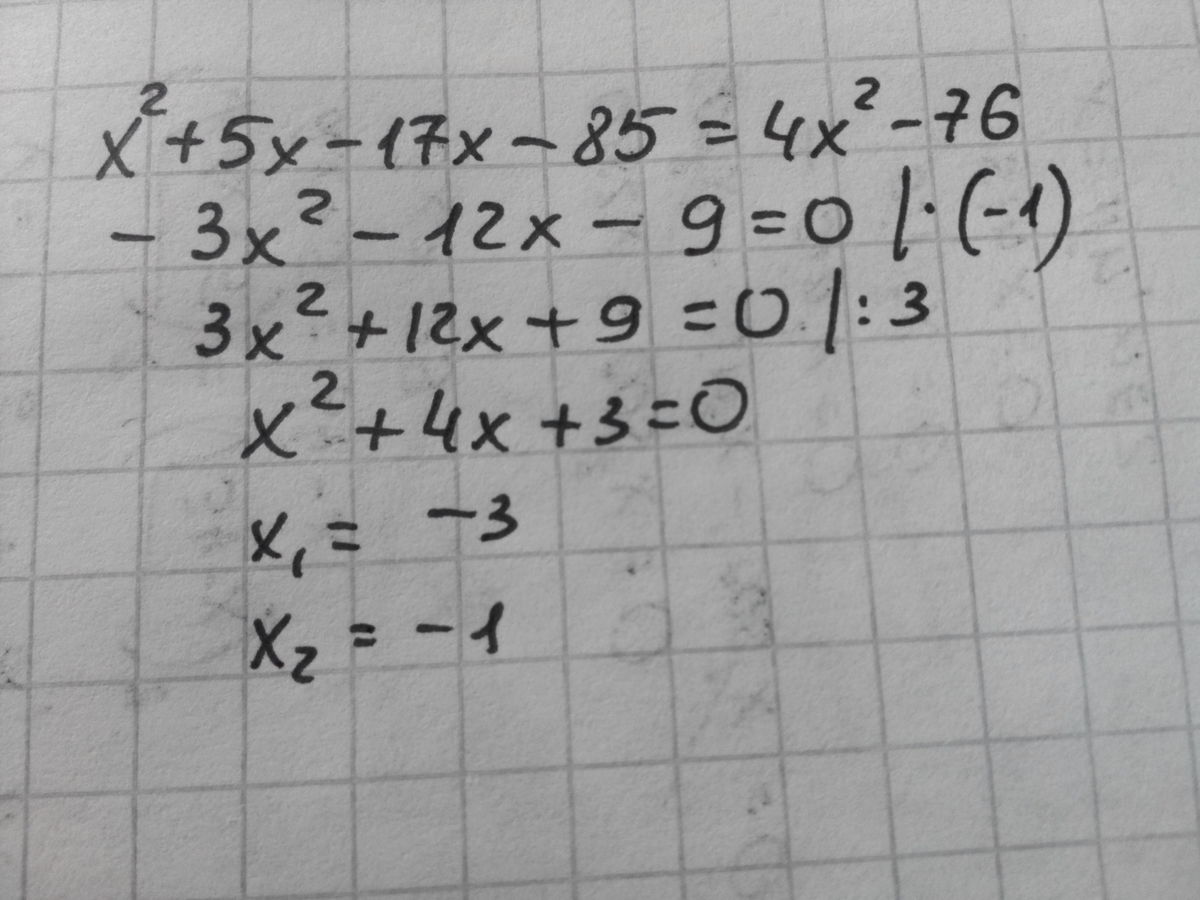 x² + 5x - 17x - 85 = 4x² - 76
- 3x² - 12x - 9 = 0 | · (-1)
3x² + 12x + 9 = 0 | : 3
x² + 4x + 3 = 0
x₁ = -3
x₂ = -1